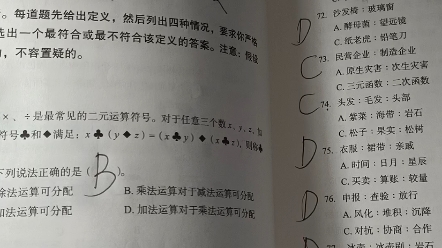 。每道题先给出定义，然后列出四种情况，要求你严格
选出一个最符合或最不符合该定义的答案。注意：假设
，不容置疑的。
×、÷是最常见的二元运算符号。对于任意三个数x、y、z，如
符号♣和◆满足：x♣（y◆z）=（x♣y）◆（x♣z），则称♣
下列说法正确的是（B）。
除法运算可分配
B. 乘法运算对于减法运算可分配
加法运算可分配
D. 加法运算对于乘法运算可分配
D
72. 沙发椅：玻璃窗
A. 酵母菌：望远镜
C. 纸老虎：铅笔刀
C
73. 民营企业：制造企业
A. 原生灾害：次生灾害
C. 三元函数：二次函数
C
74. 头发：毛发：头部
A. 紫菜：海带：岩石
C. 松子：果实：松树
D
75. 衣服：裙带：亲戚
A. 时间：日月：星辰
C. 买卖：算账：较量
D
76. 申报：查验：放行
A. 风化：堆积：沉降
C. 对抗：协商：合作